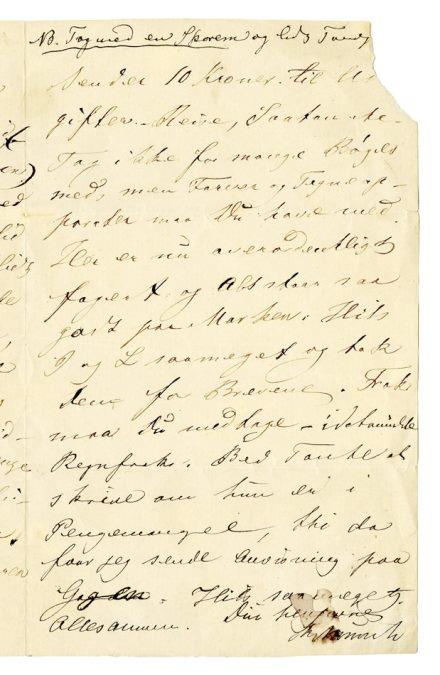 NB. Tag med en og lidt
Sender 10 Kroner til
gifter. Reise,
Tag ikke for mange Bøger
med, men Farver og Tegneap-
parater maa Du have med.
Her er nu overordentligt
fagert og Alt staar saa
godt paa Marken. Hils
I og L saameget og tak
dem for Brevene. Frak
maa Du medtage – idetmindste
Regnfrak. Bed Tante at
skrive om hun er i
Pengemangel, thi da
faar jeg sende Anvisning paa
Gagen. Hils saameget
Allesammen. Din hengivne
Munch